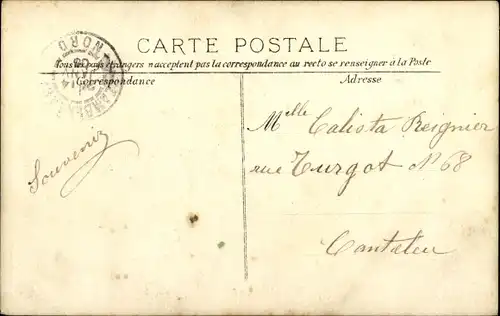 CARTE POSTALE
Tous les pays étrangers n'acceptent pas la correspondance au recto se renseigner à la Poste
Correspondance
Adresse
NORD
Souvenir
Melle Calista Reignier
rue Turgot N° 68
Canteleu